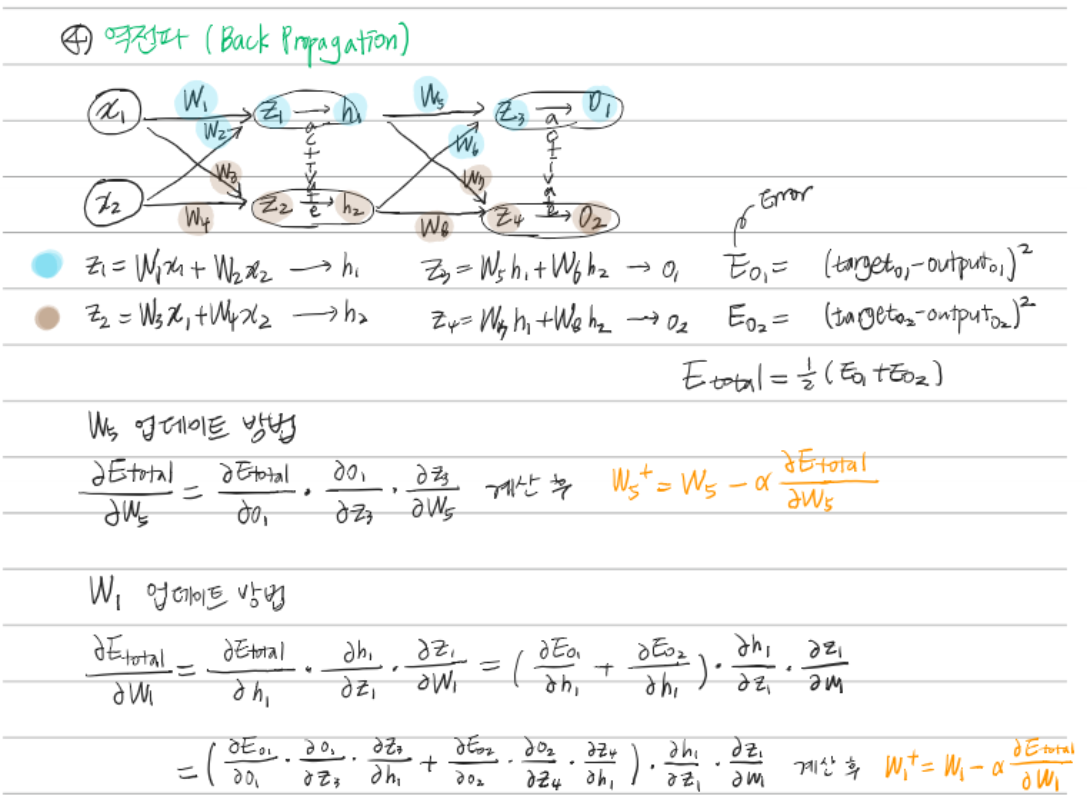 ④ 역전파 (Back Propagation)
x₁ W₁ z₁ → h₁ W₅ z₃ → o₁
W₂ W₆
activate activate
W₃ W₇
x₂ W₄ z₂ → h₂ W₈ z₄ → o₂
Error
z₁ = W₁x₁ + W₂x₂ → h₁ z₃ = W₅h₁ + W₆h₂ → o₁ E₀₁ = (target₀₁ - output₀₁)²
z₂ = W₃x₁ + W₄x₂ → h₂ z₄ = W₇h₁ + W₈h₂ → o₂ E₀₂ = (target₀₂ - output₀₂)²
Etotal = ½ (E₀₁ + E₀₂)
W₅ 업데이트 방법
∂Etotal/∂W₅ = ∂Etotal/∂o₁ · ∂o₁/∂z₃ · ∂z₃/∂W₅ 계산 후 W₅⁺ = W₅ - α ∂Etotal/∂W₅
W₁ 업데이트 방법
∂Etotal/∂W₁ = ∂Etotal/∂h₁ · ∂h₁/∂z₁ · ∂z₁/∂W₁ = (∂E₀₁/∂h₁ + ∂E₀₂/∂h₁) · ∂h₁/∂z₁ · ∂z₁/∂W₁
= (∂E₀₁/∂o₁ · ∂o₁/∂z₃ · ∂z₃/∂h₁ + ∂E₀₂/∂o₂ · ∂o₂/∂z₄ · ∂z₄/∂h₁) · ∂h₁/∂z₁ · ∂z₁/∂W₁ 계산 후 W₁⁺ = W₁ - α ∂Etotal/∂W₁